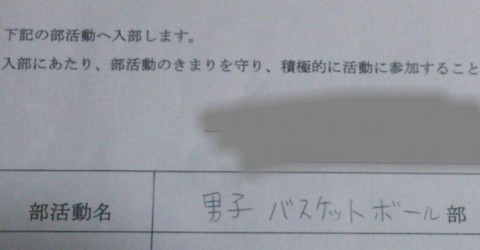 下記の部活動へ入部します。
入部にあたり、部活動のきまりを守り、積極的に活動に参加すること
部活動名 男子 バスケットボール 部